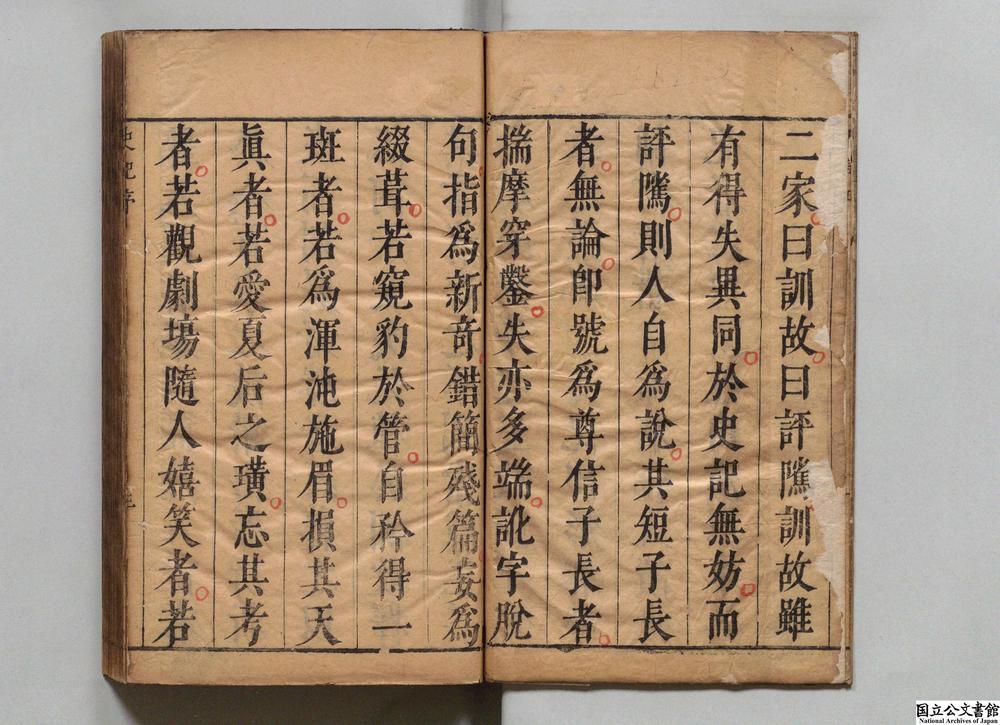 二家曰訓故曰評隲訓故雖
有得失異同於史記無妨而
評隲則人自爲說其短子長
者無論卽號爲尊信子長者
揣摩穿鑿失亦多端訛字脫
句指爲新竒錯簡殘篇妄爲
綴葺若窺豹於管自矜得一
斑者若爲渾沌施眉損其天
眞者若愛夏后之璜忘其考
者若觀劇塲隨人嬉笑者若
史記序
国立公文書館
National Archives of Japan